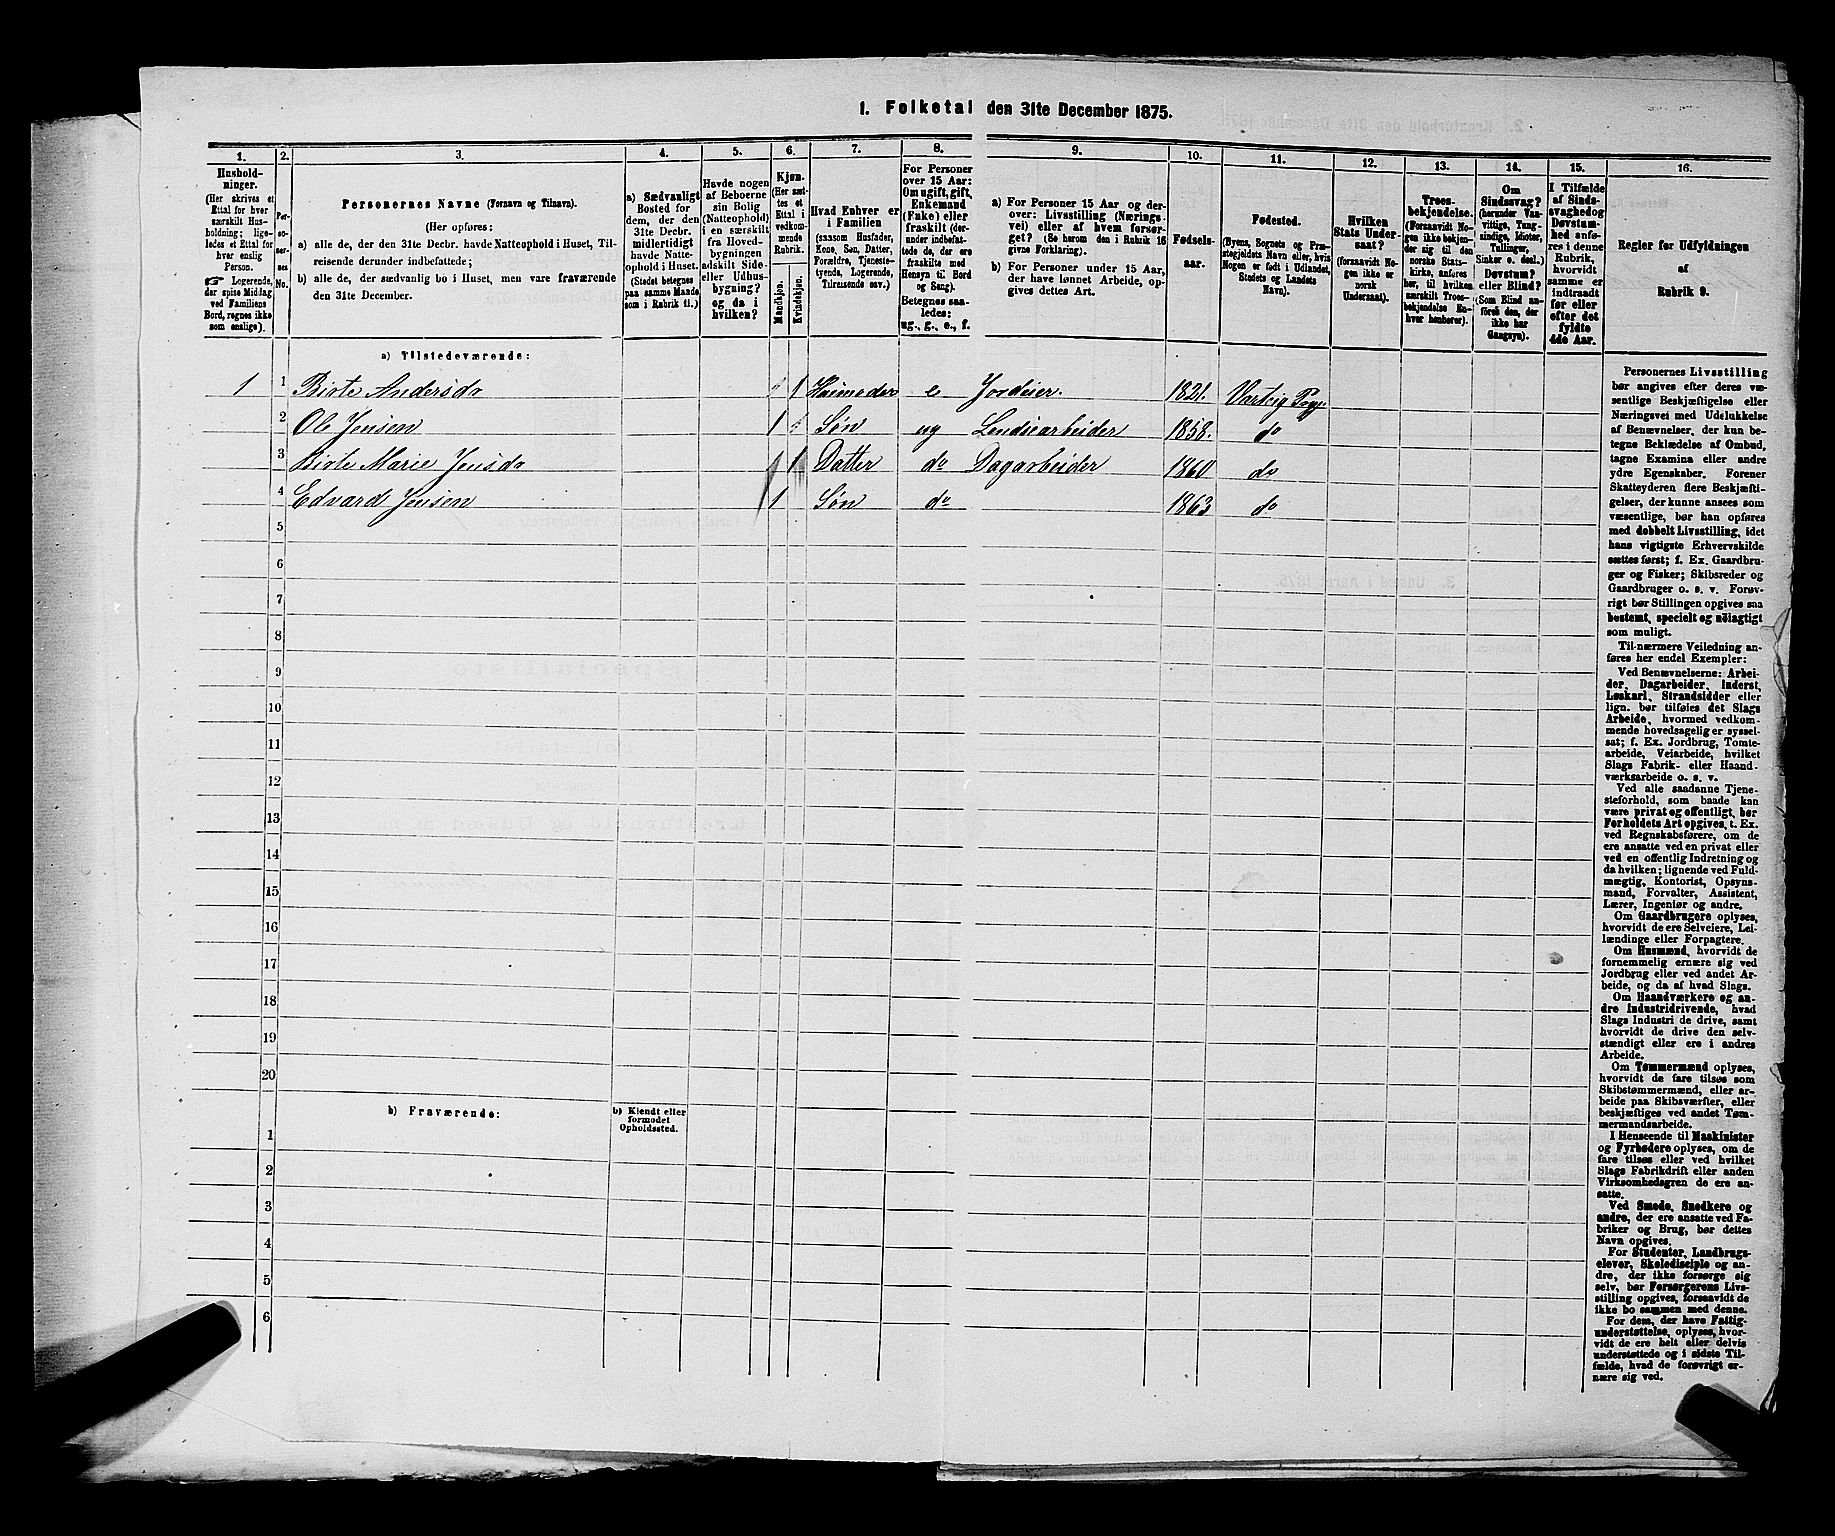 1. Folketal den 31te December 1875.
1.
2.
3.
4.
5.
6.
7.
8.
9.
10.
11.
12.
13.
14.
15.
16.
Hushold-
ninger.
(Her skrives et
Ettal for hver
særskilt Hus-
holdning; lige-
ledes et Ettal for
hver enslig
Person.
☞ Logerende,
der spise Middag
ved Familiens
Bord, regnes ikke
som enslige).
Per-
so-
ner-
nes
No.
Personernes Navne (Fornavn og Tilnavn).
(Her opføres:
a) alle de, der den 31te Decbr. havde Natteophold i Huset, Til-
reisende derunder indbefattede;
b) alle de, der sædvanlig bo i Huset, men vare fraværende
den 31te December.
a) Sædvanligt
Bosted for
dem, der den
31te Decbr.
midlertidigt
havde Natte-
ophold i Huset.
(Stedet betegnes
paa samme Maade
som i Rubrik 11.)
Havde nogen
af Beboerne
sin Bolig
(Natteophold)
i en særskilt
fra Hoved-
bygningen
adskilt Side-
eller Udhus-
bygning?
og da i
hvilken?
Kjøn.
(Her sæt-
tes et
Ettal i
vedkom-
mende
Rubrik.
Mandkjøn.
Kvindekjøn.
Hvad Enhver er
i Familien
(saasom Husfader,
Kone, Søn, Datter,
Forældre, Tjeneste-
tyende, Logerende,
Tilreisende osv.)
For Personer
over 15 Aar:
Om ugift, gift,
Enkemand
(Enke) eller
fraskilt (der-
under indbefat-
tede de, der ere
fraskilte med
Hensyn til Bord
og Seng).
Betegnes saa-
ledes:
ug., g., e., f.
a) For Personer 15 Aar og der-
over: Livsstilling (Nærings-
vei) eller af hvem forsør-
get? (Se herom den i Rubrik 16
givne Forklaring).
b) For Personer under 15 Aar,
der have lønnet Arbeide, op-
gives dettes Art.
Fødsels-
aar.
Fødested.
(Byens, Sognets og Præ-
stegjeldets Navn eller, hvis
Nogen er født i Udlandet,
Stedets og Landets
Navn).
Hvilken
Stats Under-
saat?
(forsaavidt No-
gen ikke er
norsk
Undersaat).
Troes-
bekjendelse.
(Forsaavidt No-
gen ikke bekjen-
der sig til den
norske Stats-
kirke, anføres
her, til hvilken
særskilt Troes-
bekjendelse En-
hver henhører).
Om
Sindssvag?
(herunder Van-
vittige, Tung-
sindige, Idioter,
Tullinger,
Sinker o. desl.)
Døvstum?
eller Blind?
(Som Blind an-
føres den, der
ikke har
Gangsyn).
I Tilfælde
af Sinds-
svaghed og
Døvstum-
hed anfø-
res i denne
Rubrik,
hvorvidt
samme er
indtraadt
før eller
efter det
fyldte
4de Aar.
Regler for Udfyldningen
af
Rubrik 9.
a) Tilstedeværende:
1 1 Birte Andersdr 1 Husmoder e Jordeier. 1821. Varteig Pgj.
2 Ole Jensen 1 Søn ug Lendsearbeider 1858. do
3 Birte Marie Jensdr 1 Datter do Dagarbeider 1860 do
4 Edvard Jensen 1 Søn do 1863 do
5
6
7
8
9
10
11
12
13
14
15
16
17
18
19
20
b) Fraværende:
b) Kjendt eller
formodet
Opholdssted.
1
2
3
4
5
6
Personernes Livsstilling
bør angives efter deres væ-
sentlige Beskjæftigelse eller
Næringsvei med Udelukkelse
af Benævnelser, der kun be-
tegne Beklædelse af Ombud,
tagne Examina eller andre
ydre Egenskaber. Forener
Skatteyderen flere Beskjæfti-
gelser, der kunne ansees som
væsentlige, bør han opføres
med dobbelt Livsstilling, idet
hans vigtigste Erhvervskilde
sættes først; f. Ex. Gaardbru-
ger og Fisker; Skibsreder og
Gaardbruger o. s. v. Forøv-
rigt bør Stillingen opgives saa
bestemt, specielt og nöiagtigt
som muligt.
Til nærmere Veiledning an-
føres her endel Exempler:
Ved Benævnelserne: Arbei-
der, Dagarbeider, Inderst,
Løskarl, Strandsidder eller
lign. bør tilføies det Slags
Arbeide, hvormed vedkom-
mende hovedsagelig er syssel-
sat; f. Ex. Jordbrug, Tomte-
arbeide, Veiarbeide, hvilket
Slags Fabrik- eller Haand-
værksarbeide o. s. v.
Ved alle saadanne Tjene-
steforhold, som baade kan
være privat og offentligt, bør
Forholdets Art opgives, t. Ex.
ved Regnskabsførere, om de
ere ansatte ved en privat eller
ved en offentlig Indretning og
da hvilken; lignende ved Fuld-
mægtig, Kontorist, Opsyns-
mand, Forvalter, Assistent,
Lærer, Ingeniør og andre.
Om Gaardbrugere oplyses,
hvorvidt de ere Selveiere, Lei-
lændinge eller Forpagtere.
Om Husmænd, hvorvidt de
fornemmelig ernære sig ved
Jordbrug eller ved andet Ar-
beide, og da af hvad Slags.
Om Haandværkere og an-
dre Industridrivende, hvad
Slags Industri de drive, samt
hvorvidt de drive den selv-
stændigt eller ere i andres
Arbeide.
Om Tømmermænd oplyses,
hvorvidt de fare tilsøs som
Skibstømmermænd, eller ar-
beide paa Skibsværfter, eller
beskjæftiges ved andet Tøm-
mermandsarbeide.
I Henseende til Maskinister
og Fyrbødere oplyses, om de
fare tilsøs eller ved hvilket
Slags Fabrikdrift eller anden
Virksomhedsgren de ere an-
satte.
Ved Smede, Snedkere og
andre, der ere ansatte ved Fa-
briker og Brug, bør dettes
Navn opgives.
For Studenter, Landbrugs-
elever, Skoledisciple og an-
dre, der ikke forsørge sig
selv, bør Forsørgerens Livs-
stilling opgives, forsaavidt de
ikke bo sammen med denne.
For dem, der have Fattig-
understøttelse, oplyses, hvor-
vidt de ere helt eller delvis
understøttede og i sidste Til-
fælde, hvad de forøvrigt er-
nære sig ved.